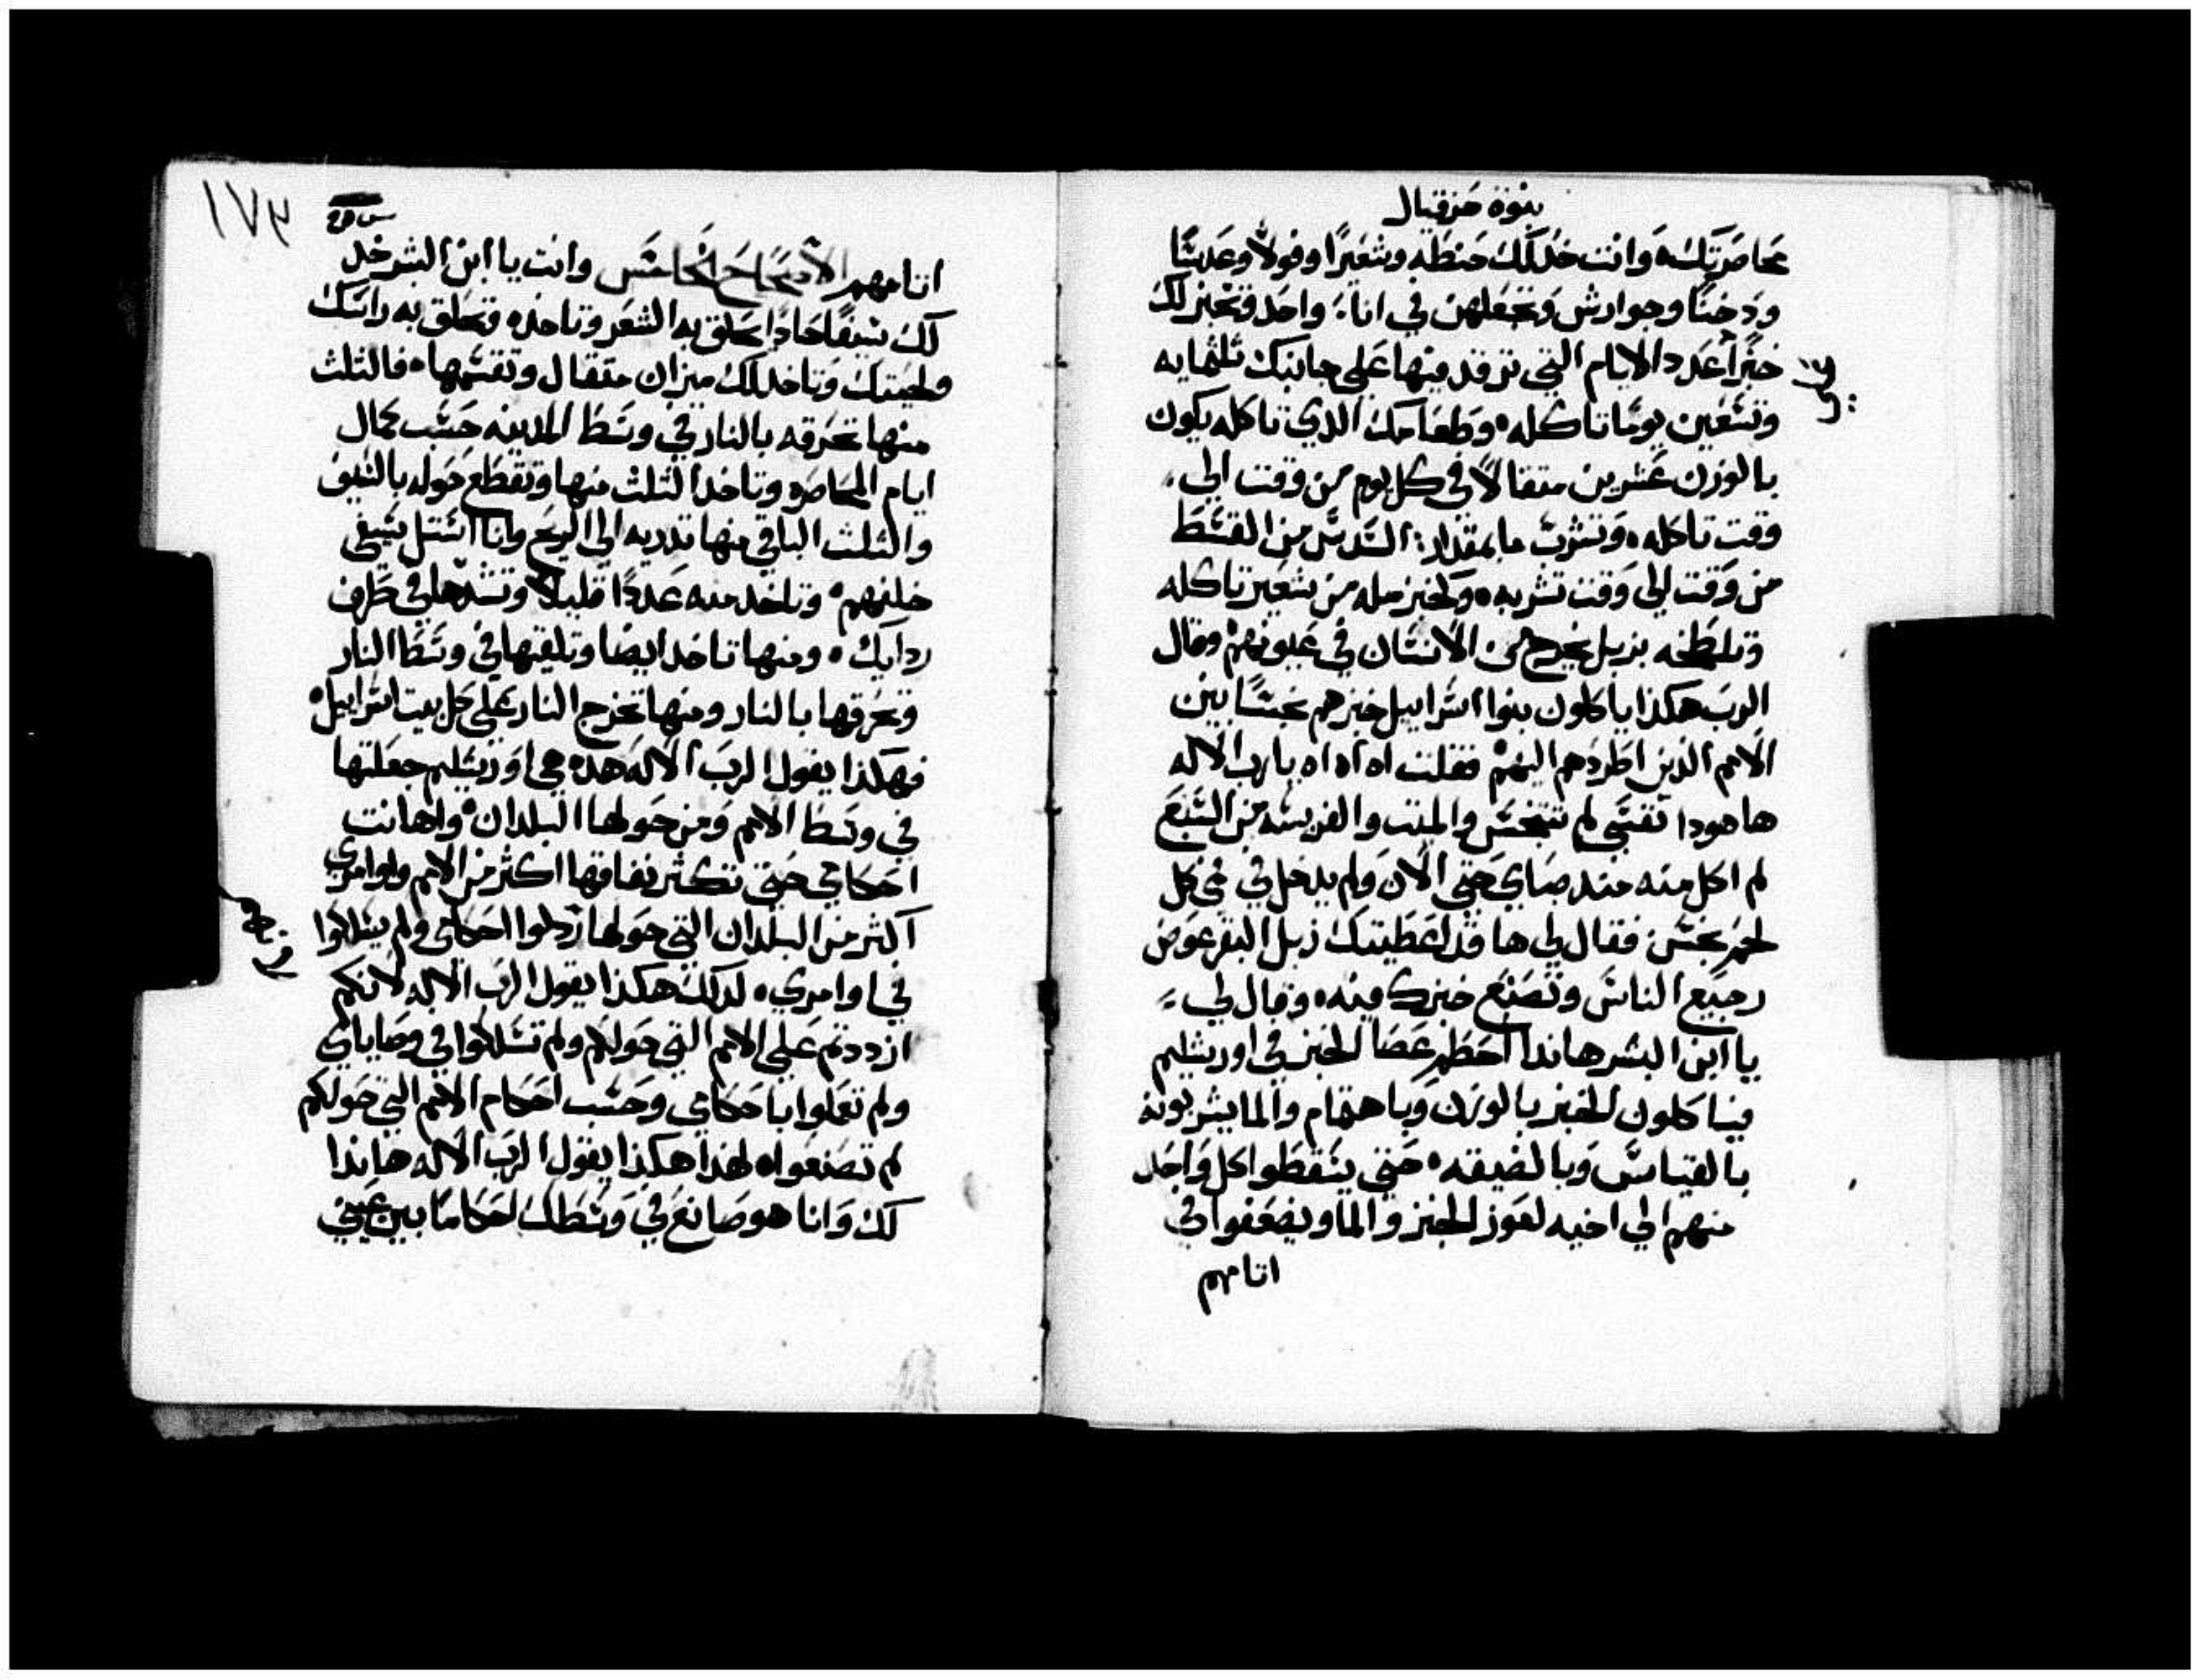 بنوة حزقيال
محاصرتك ه وانت خد لك حنطه وشعيرا وفولا وعدسا
ودخنا وجوارش وتجعلهن في اناء واحد وتخبز لك
خبزا عدد الايام التي ترقد فيها علي جانبك تلتمايه
وتسعين يوما تاكله ه وطعامك الدي تاكله يكون
بالوزن عشرين متقالا في كل يوم من وقت الي
وقت تاكله ه وتشرب ما بمقدار السدس من القسط
من وقت الي وقت تشربه ه وكخبز مله من شعير تاكله
وتلطخه بزبل يخرج من الانسان في عيونهم وقال
الرب هكذا ياكلون بنوا اسراييل خبزهم نجسا بين
الامم الذين اطردهم اليهم فقلت اه اه اه يا رب الاله
ها هودا نفسي لم تتنجس والميت والفريسه من السبع
لم اكل منه منذ صباي حتي الان ولم يدخل في فمي كل
لحم نجس فقال لي ها قد اعطيتك زبل البقر عوض
رجيع الناس وتصنع خبزك فيه ه وقال لي
يا ابن البشر هاندا احطم عصا الخبز في اورشليم
فياكلون الخبز بالوزن وباهتمام والما يشربونه
بالقياس وبالضيقه ه حتي يسقطوا كل واحد
منهم الي اخيه لعوز الخبز والما ويضعفوا في
اتامهم
١٧٦
اتامهم الاصحاح الخامس وانت يا ابن البشر خد
لك سيفا حادا يحلق به الشعر وتاخده وتحلق به راسك
ولحيتك وتاخد لك ميزان متقال وتقسمها ه فالتلت
منها تحرقه بالنار في وسط المدينه حسب كمال
ايام المحاصره وتاخد التلت منها وتقطع حوله بالسيف
والتلت الباقي منها تدريه الي الريح وانا استل سيفي
خلفهم ه وتاخد منه عددا قليلا وتشدها في طرف
ردايك ه ومنها تاخد ايضا وتلقيها في وسط النار
وتحرقها بالنار ومنها تخرج النار علي كل بيت اسراييل ه
فهكذا يقول الرب الاله هده هي اورشليم جعلتها
في وسط الامم ومن حولها البلدان ه واهانت
احكامي حتي تكثر نفاقها اكثر من الامم واوامري
اكثر من البلدان التي حولها ازدلوا احكامي ولم يسلكوا
في اوامري ه لدلك هكذا يقول الرب الاله لانكم
ازددتم علي الامم التي حولكم ولم تسلكوا في وصاياي
ولم تعملوا باحكامي وحسب احكام الامم التي حولكم
لم تصنعوا ه لهذا هكذا يقول الرب الاله هاندا
لك وانا هو صانع في وسطك احكاما بين عيني